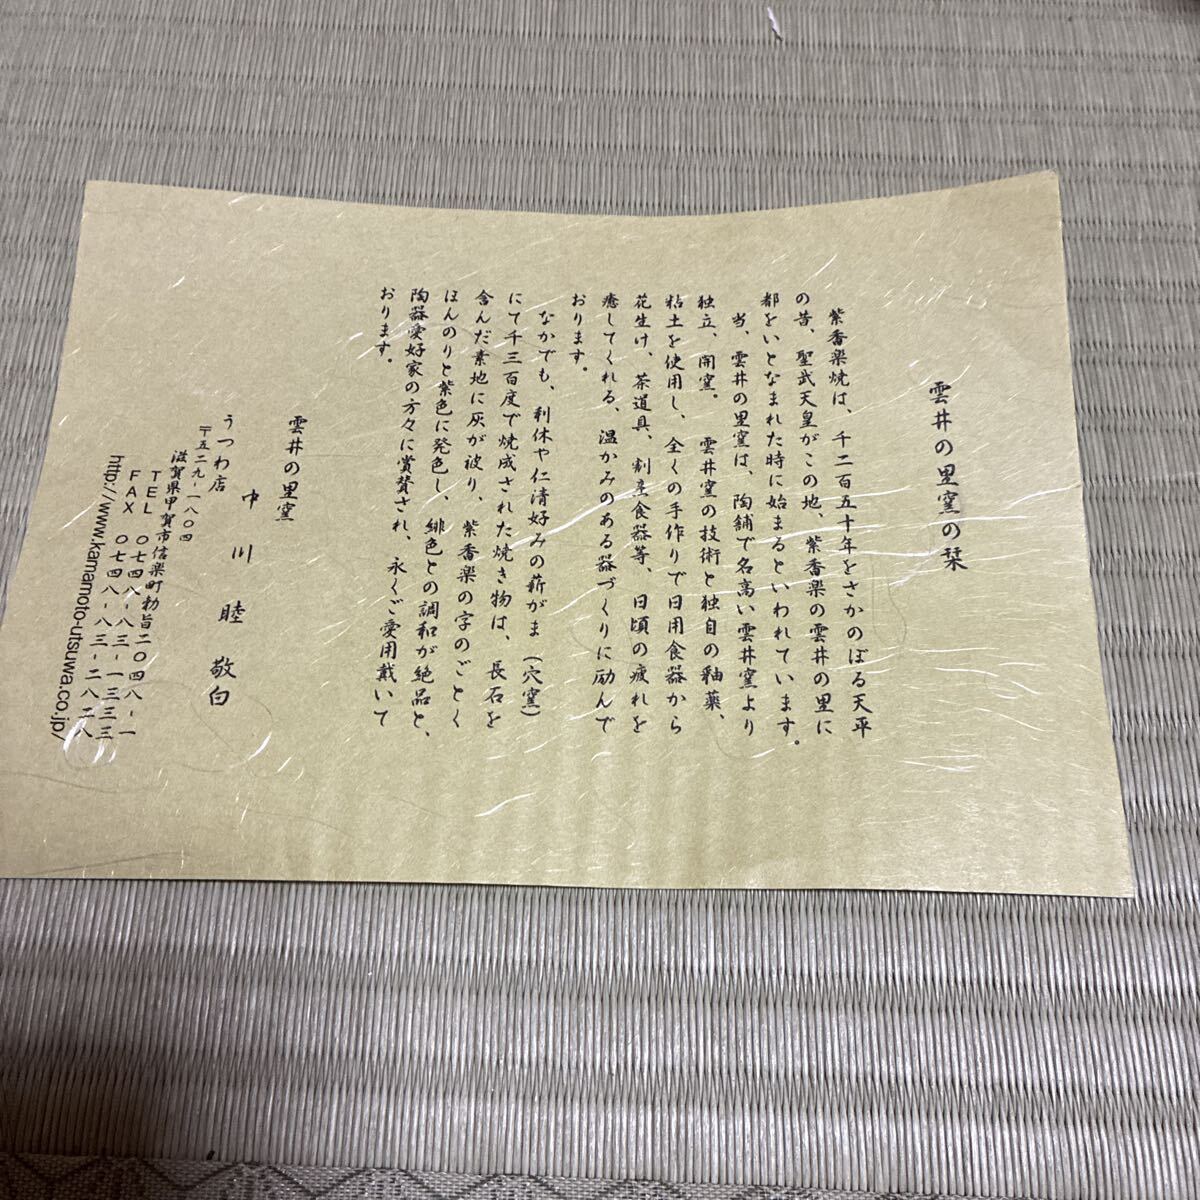 雲井の里窯の栞
紫香楽焼は、千二百五十年をさかのぼる天平
の昔、聖武天皇がこの地、紫香楽の雲井の里に
都をいとなまれた時に始まるといわれています。
当、雲井の里窯は、陶舗で名高い雲井窯より
独立、開窯。　雲井窯の技術と独自の釉薬、
粘土を使用し、全くの手作りで日用食器から
花生け、茶道具、割烹食器等、日頃の疲れを
癒してくれる、温かみのある器づくりに励んで
おります。
なかでも、利休や仁清好みの薪がま（穴窯）
にて千三百度で焼成された焼き物は、長石を
含んだ素地に灰が被り、紫香楽の字のごとく
ほんのりと紫色に発色し、緋色との調和が絶品と、
陶器愛好家の方々に賞賛され、永くご愛用戴いて
おります。
雲井の里窯
中川　睦　敬白
うつわ店
〒五二九-一八〇四
滋賀県甲賀市信楽町勅旨二〇四八-一
TEL 〇七四八-八三-一三三三
FAX 〇七四八-八三-二八二八
http://www.kamamoto-utsuwa.co.jp/